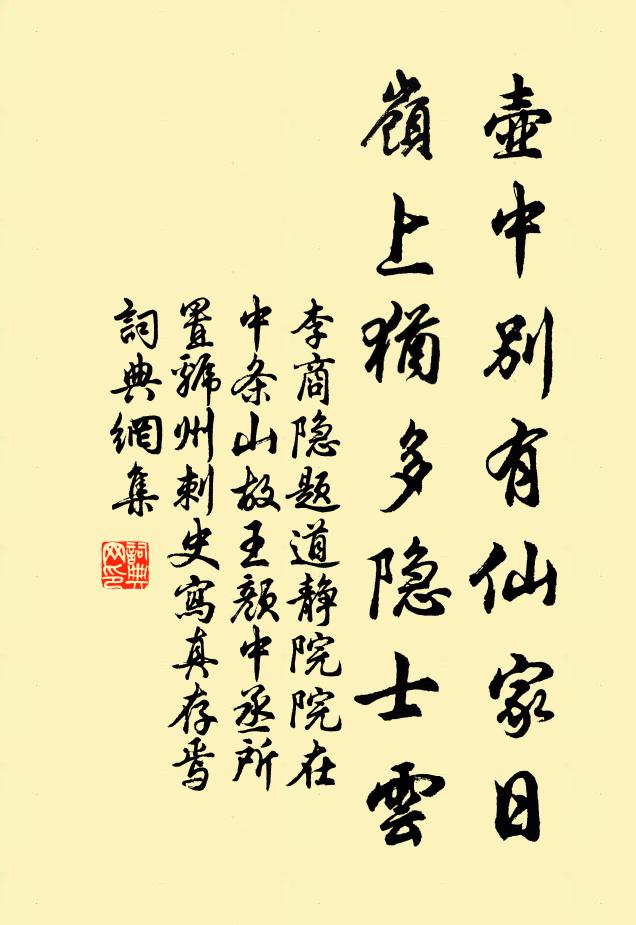 壺中別有仙家日
嶺上猶多隐士雲
李商隐题道静院院在
中条山故王颜中丞所
置虢州刺史寫真存焉
詞典網集
詞典
网印